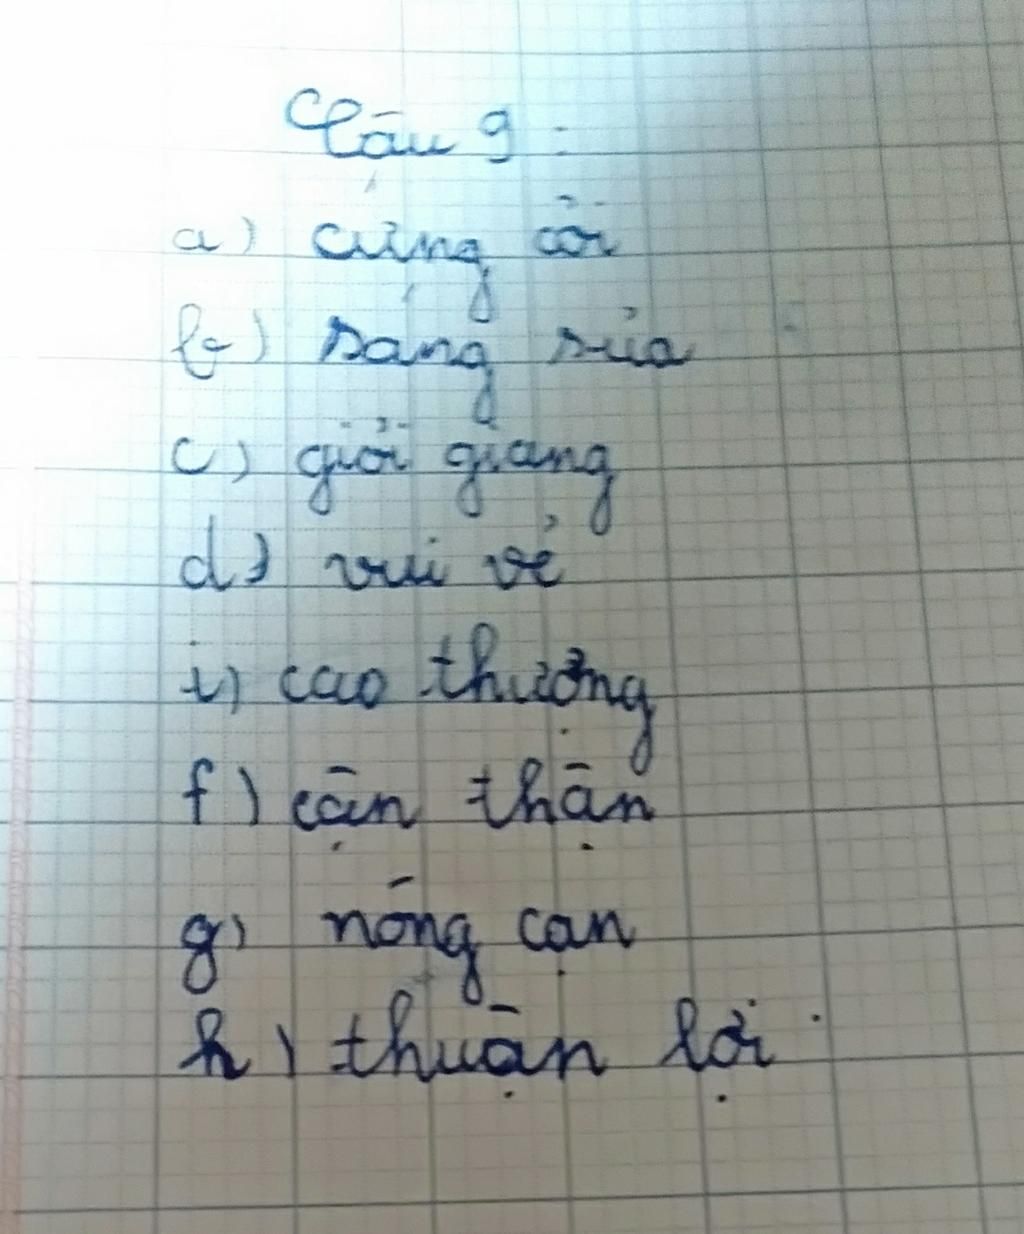 Câu 9:
a) cứng cỏi
b) sáng sủa
c) giỏi giang
d) vui vẻ
i) cao thượng
f) cận thận
g) nông cạn
h) thuận lợi